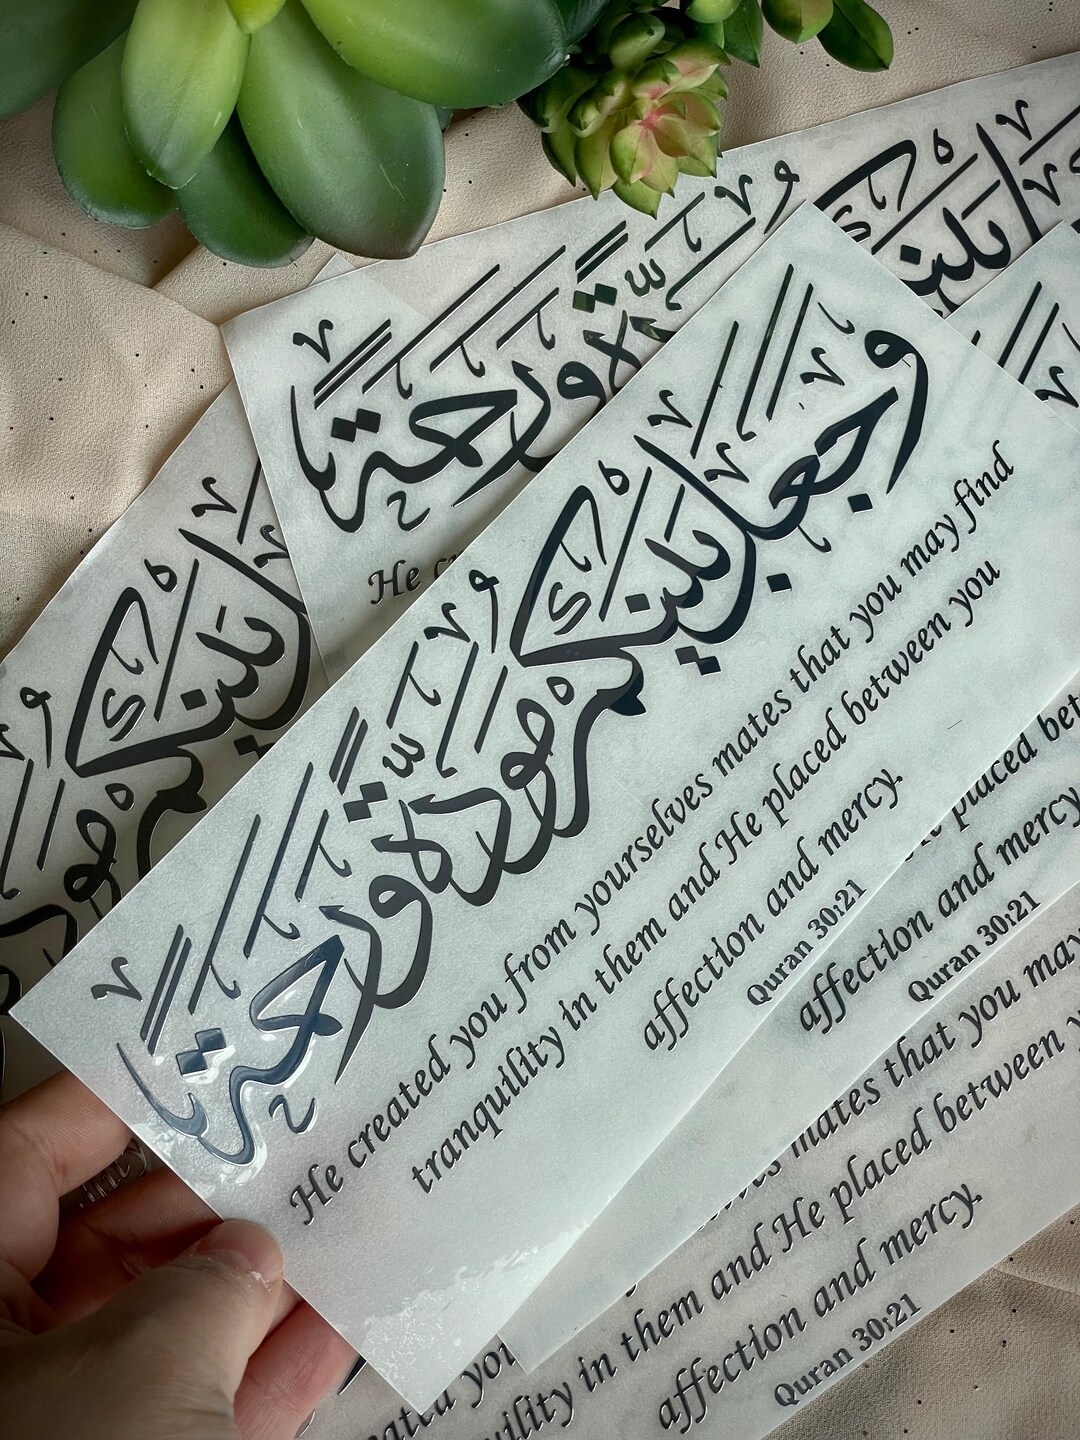 وَجَعَلَ بَيْنَكُمْ مَوَدَّةً وَرَحْمَةً
He created you from yourselves mates that you may find
tranquility in them and He placed between you
affection and mercy.
Quran 30:21
وَرَحْمَةً
He
بَيْنَكُمْ
placed
affection and mercy
Quran 30:21
mates that you may
in them and He placed between
affection and mercy.
Quran 30:21